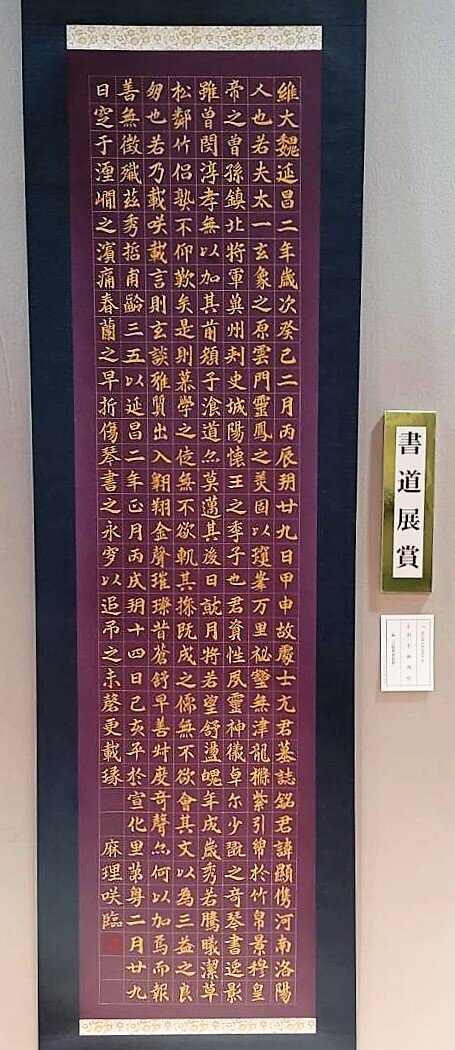 維大魏延昌二年歲次癸巳二月丙辰玥廿九日甲申故處士元君墓誌銘君諱顯儁河南洛陽
人也若夫太一玄象之原雲門靈鳳之美固以瓊峯万里祕壑無津龍檦紫引繁於竹帛景穆皇
帝之曾孫鎮北將軍冀州刺史城陽懷王之季子也君資性夙靈神儀卓尓少翫之奇琴書逸影
雖曾閔淳孝無以加其前顏子飡道亦莫邁其後日就月將若望舒盪魄年成歲秀若騰曦潔草
松鄰竹侶孰不仰歎矣是則慕學之徒無不欲軌其操既成之儒無不欲會其文以為三益之良
朋也若乃載咲載言則玄談雅質出入翱翔金聲璀璨昔蒼舒早善叶慶奇聲亦何以加焉而報
善無徵殲茲秀哲甫齡三五以延昌二年正月丙戌玥十四日己亥卒於宣化里第粤二月廿九
日窆于瀍澗之濱痛春蘭之早折傷琴書之永穸以追弔之未磬更載琢
麻理咲臨
書道展賞